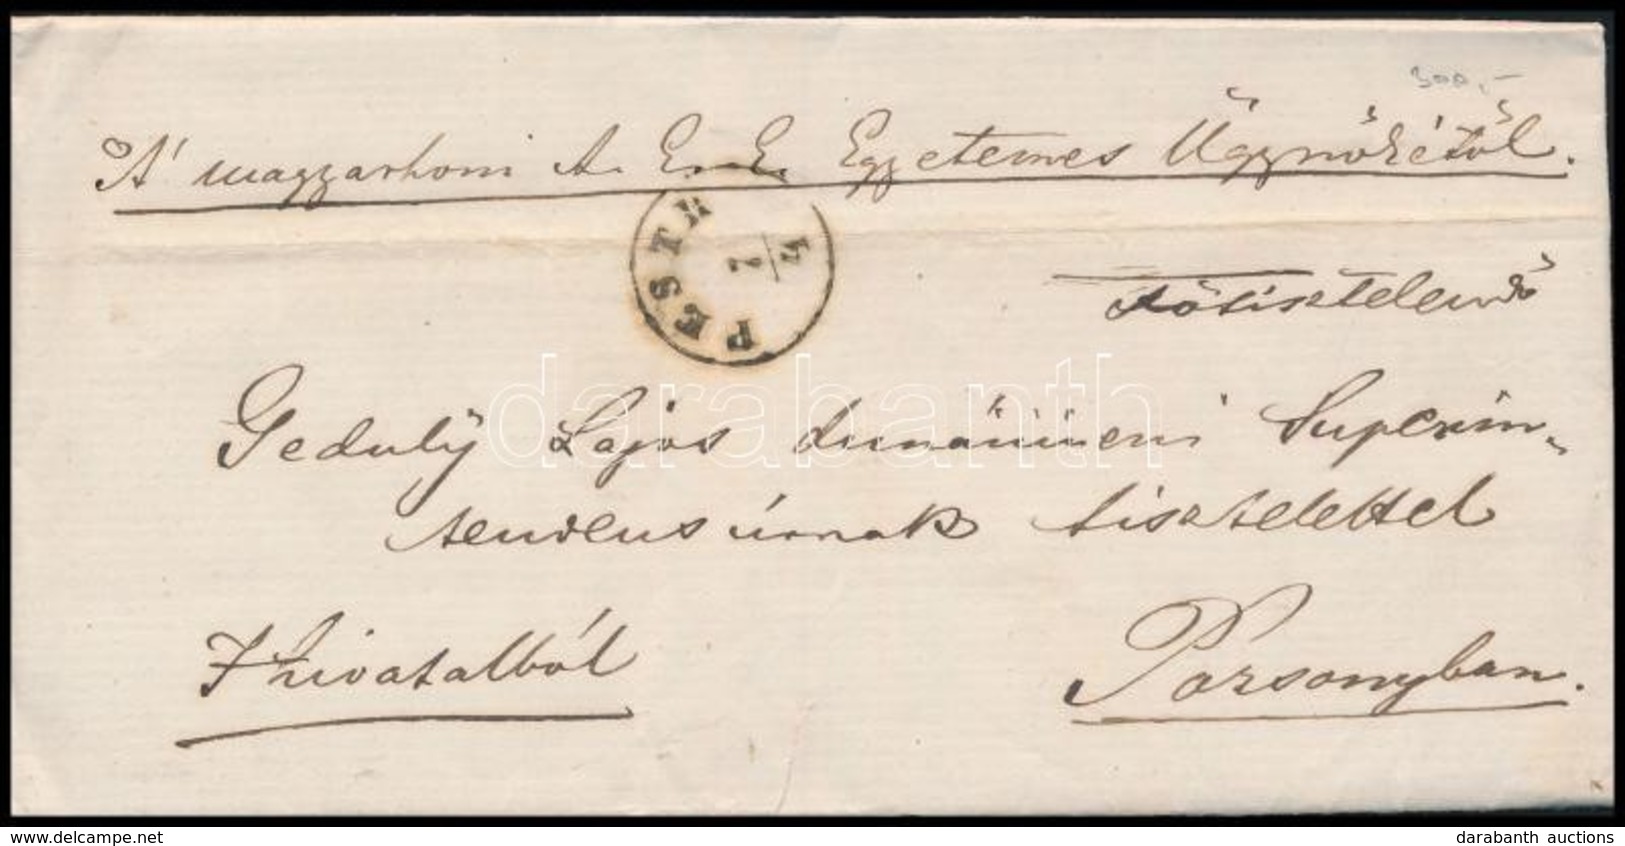 300,-
A' magyarhoni A. E. E. Egyetemes Ügynökétől.
PESTH
4/2
Főtisztelendő
Geduly Lajos dunáninneni Superin-
tendens úrnak tisztelettel
Hivatalból
Pozsonyban.
darabanth
www.delcampe.net
darabanth auctions